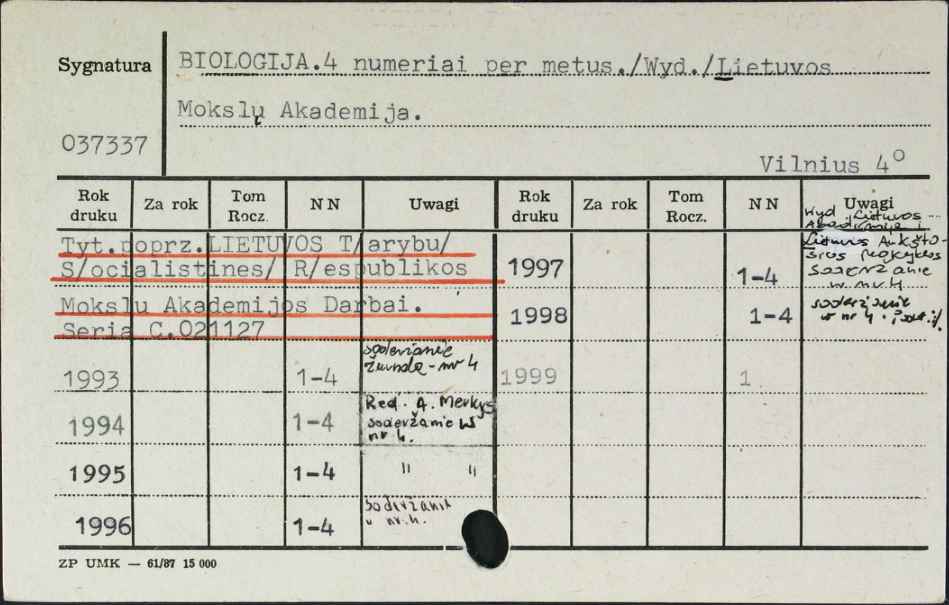 Sygnatura
BIOLOGIJA.4 numeriai per metus./Wyd./Lietuvos
Mokslų Akademija.
037337
Vilnius 4°
Rok druku Za rok Tom Rocz. NN Uwagi Rok druku Za rok Tom Rocz. NN Uwagi
Tyt.poprz.LIETUVOS T/arybu/
S/ocialistines/ R/espublikos
Mokslu Akademijos Darbai.
Seria C.021127
Wyd. Lietuvos
Akademija i
Lietuvos Aukšto-
sios Mokyklos
soderžanie
w nr 4
1997 1-4
1998 1-4
soderžanie
w nr 4
1993 1-4
nr 4
1999 1
1994 1-4
Red. A. Merkys
soderžanie w
nr 4.
1995 1-4 " "
1996 1-4
soderžanie
w nr. 4.
ZP UMK — 61/87 15 000